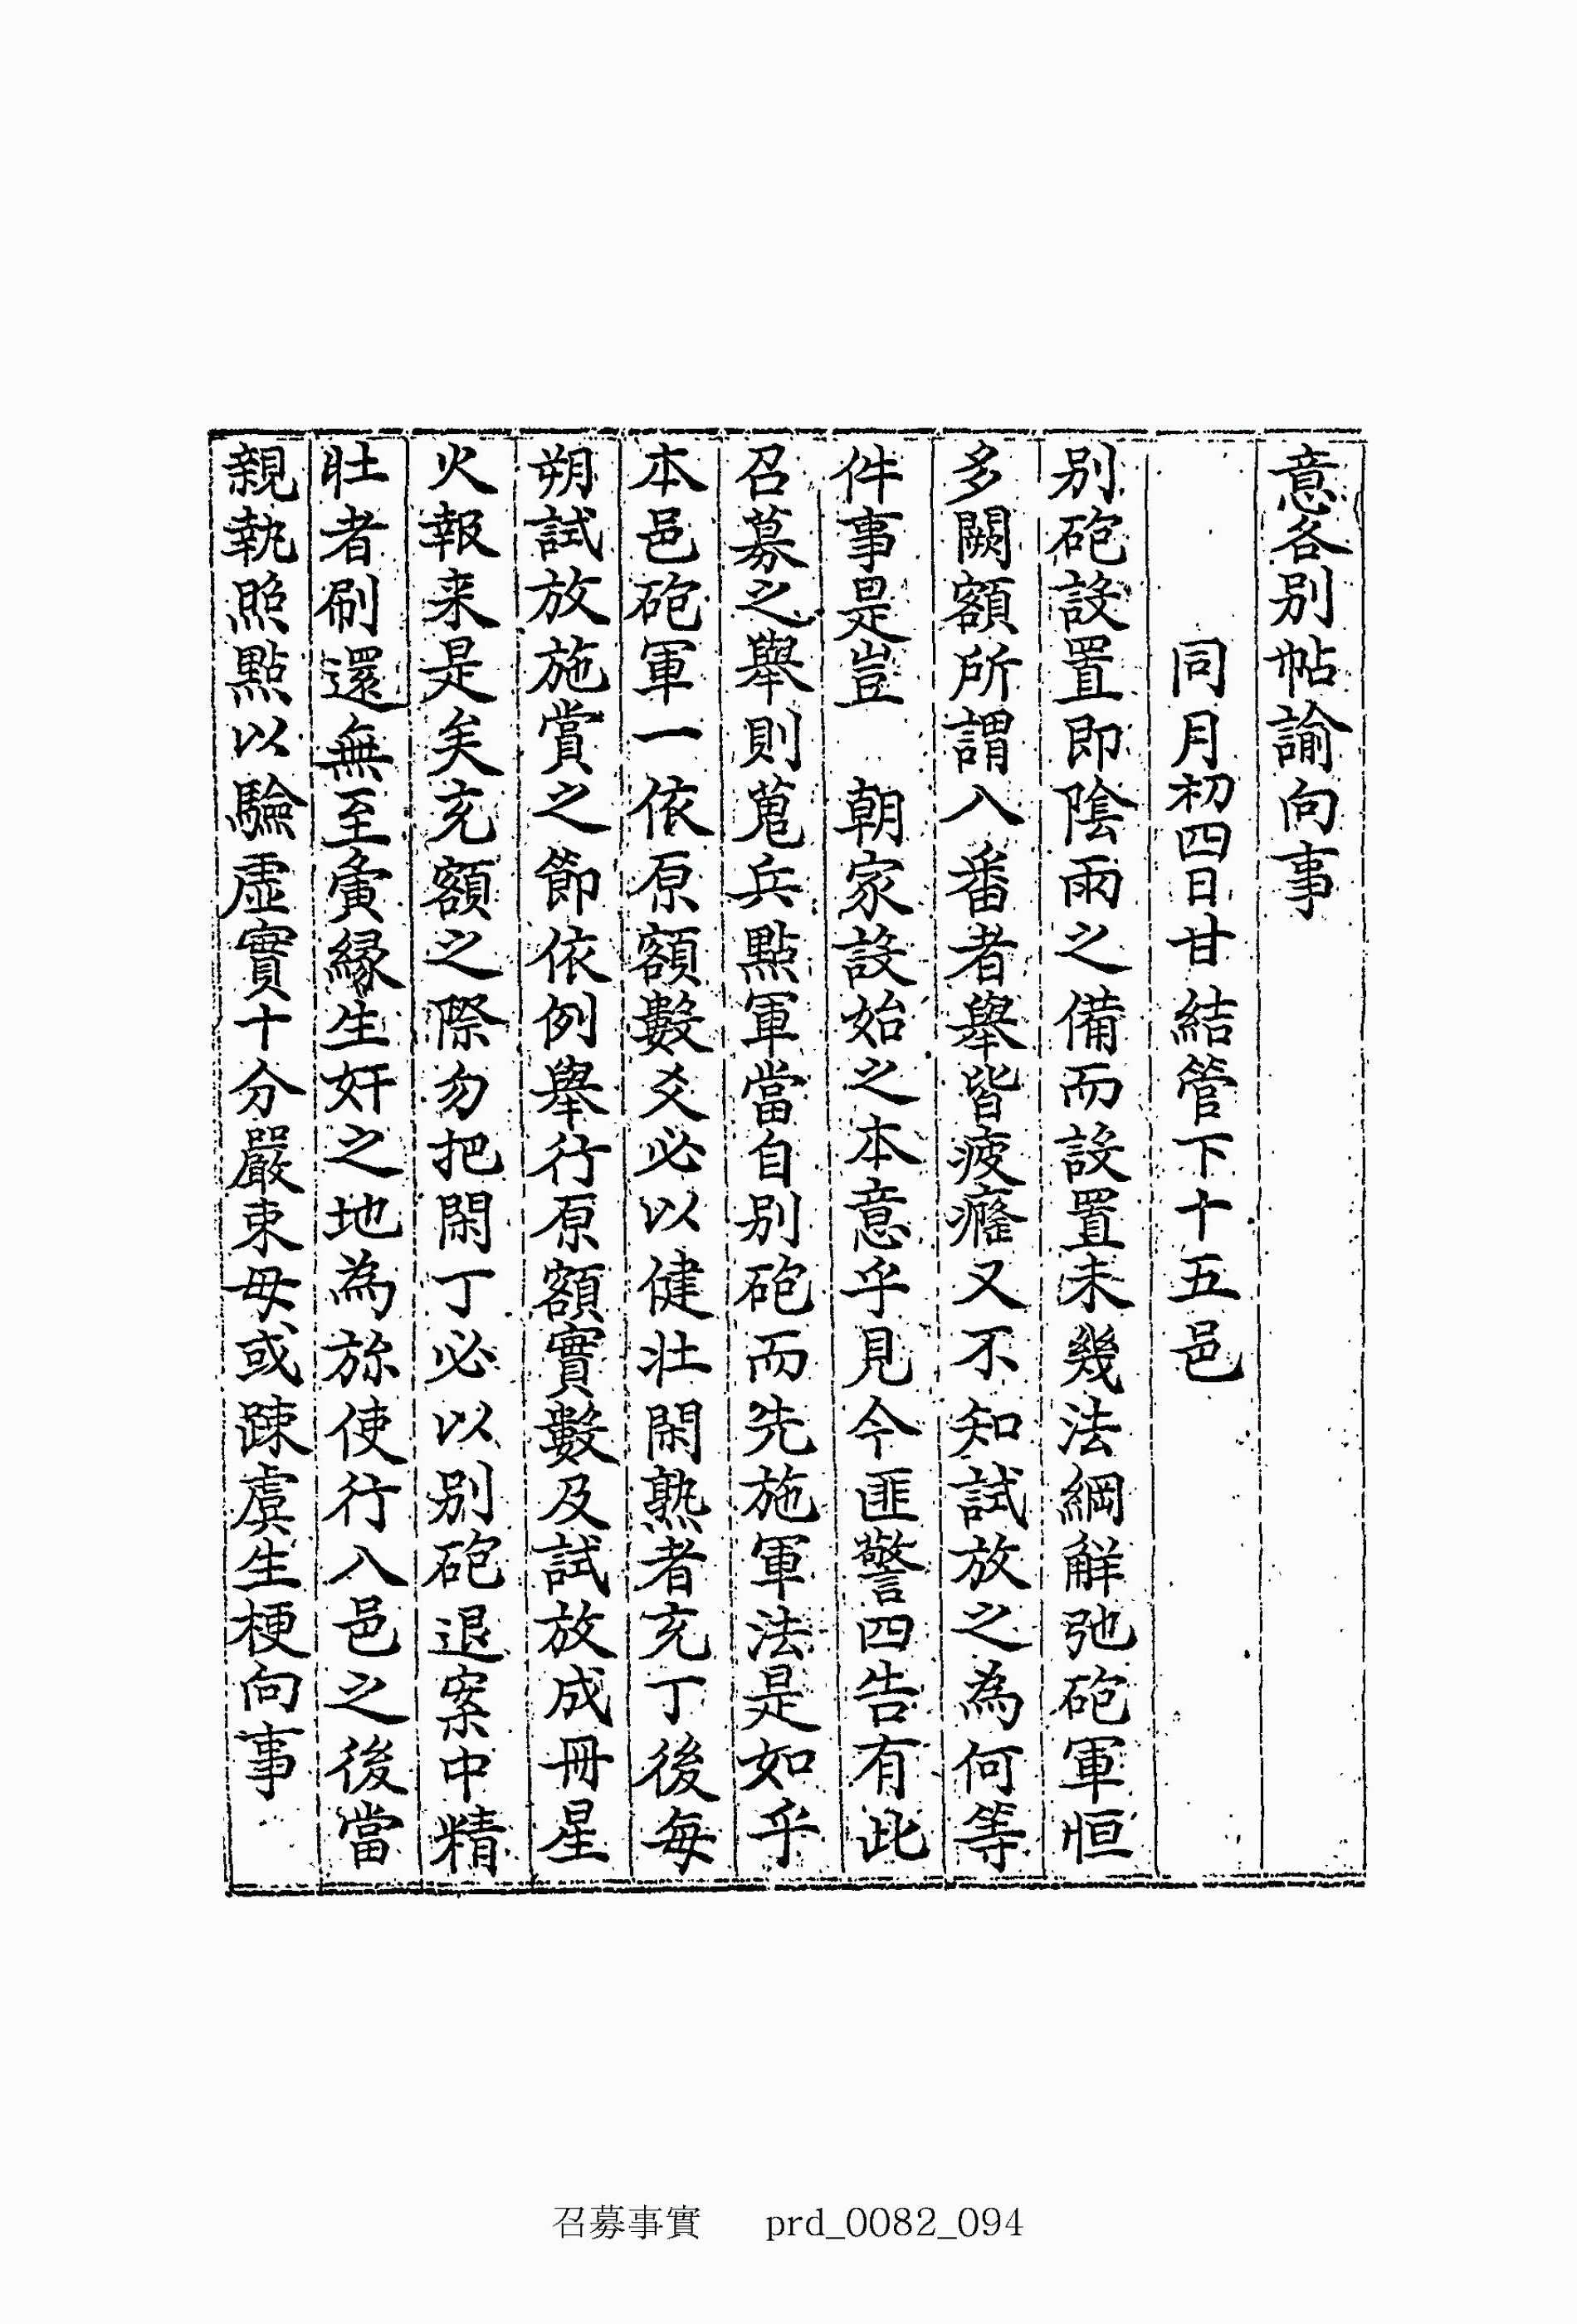 意各別帖諭向事
同月初四日甘結管下十五邑
別砲設置即陰雨之備而設置未幾法綱解弛砲軍恒
多闕額所謂入番者擧皆疲癃又不知試放之為何等
件事是豈 朝家設始之本意乎見今匪警四告有此
召募之擧則蒐兵點軍當自別砲而先施軍法是如乎
本邑砲軍一依原額數爻必以健壯閑熟者充丁後每
朔試放施賞之節依例擧行原額實數及試放成冊星
火報来是矣充額之際勿把閑丁必以別砲退案中精
壯者刷還無至夤緣生奸之地為旀使行入邑之後當
親執照點以驗虛實十分嚴束毋或踈虞生梗向事
召募事實 prd_0082_094